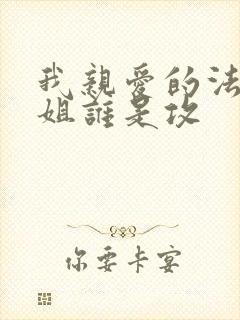 我親愛的法
姐誰是攻
你要卡宴